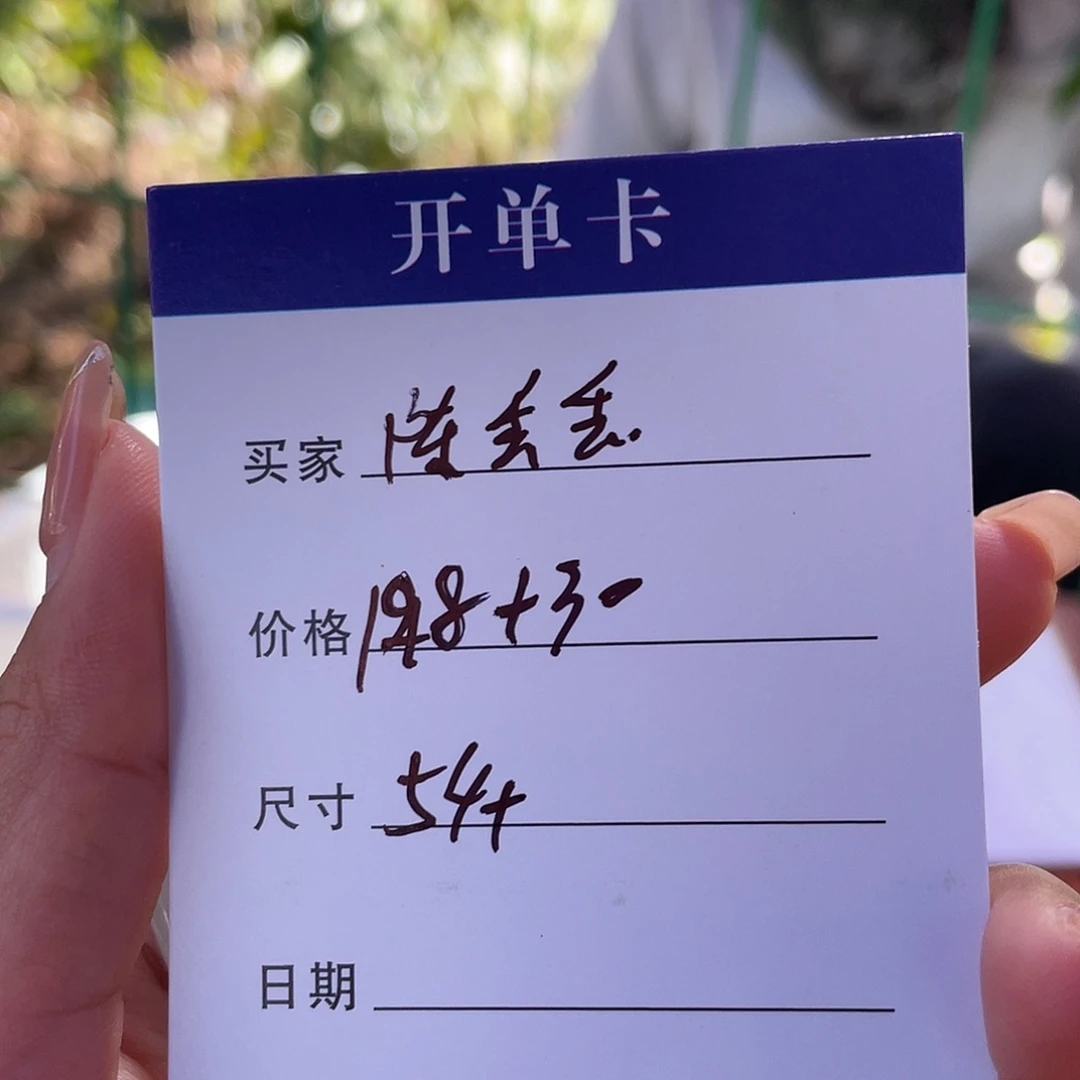 开单卡
买家 陈丢丢
价格 198+30
尺寸 54+
日期